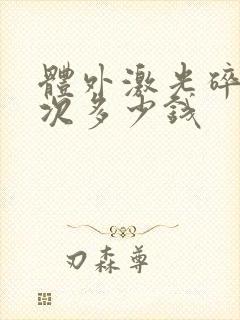 體外激光碎
次多少錢
刃森尊